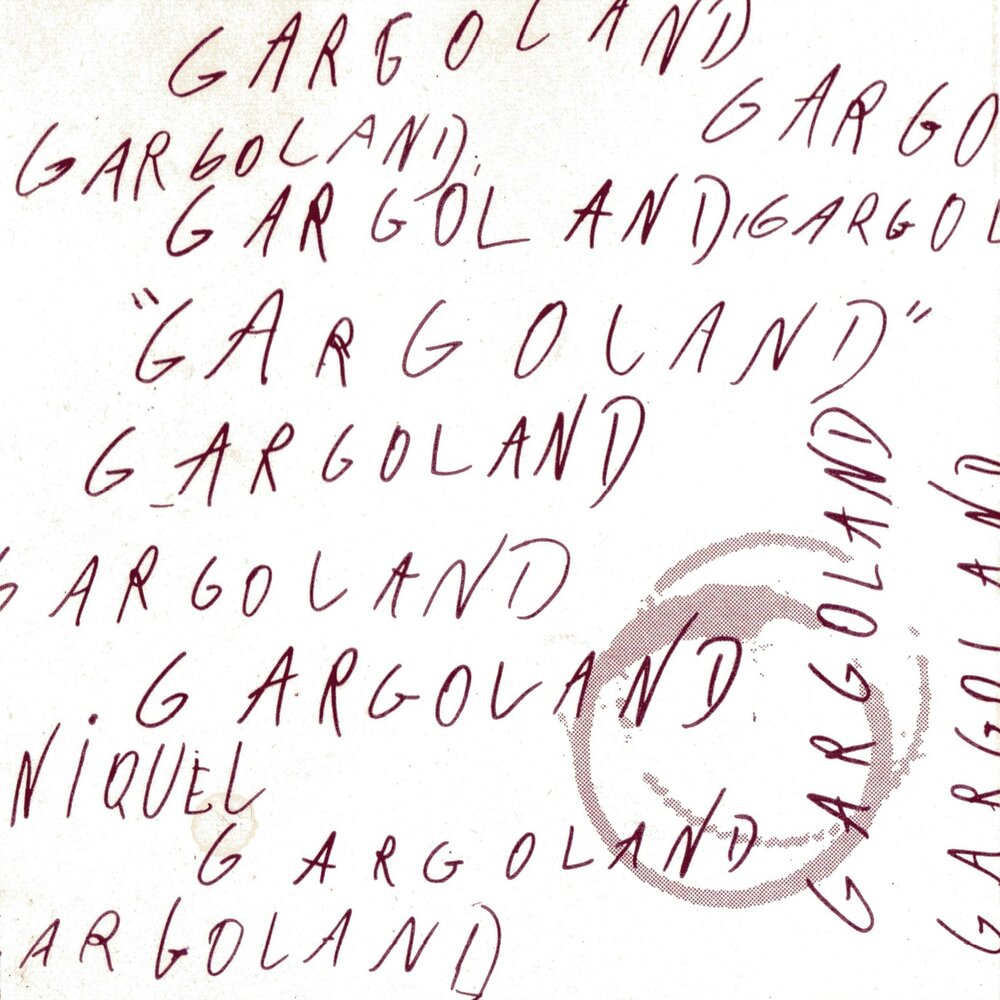 GARGOLAND
GARGO
GARGOLAND.
GARGOLAND, GARGOL
"GARGOLAND"
GARGOLAND
GARGOLAND
GARGOLAND
NIQUEL
GARGOLAND
ARGOLAND
GARGOLAND
GARGOLAND